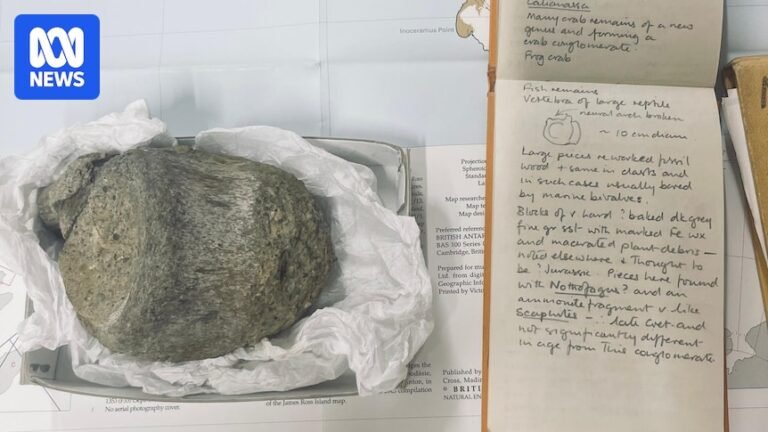 NEWS
Inoceramus Point
Callianassa
Many crab remains of a new
genus and forming a
crab conglomerate.
Frog crab
Fish remains
Vertebra of large reptile
neural arch broken
~ 10 cm diam
Large pieces reworked fossil
wood + same in clasts and
in such cases usually bored
by marine bivalves.
Blocks of v hard ? baked dk grey
fine gr sst with marked Fe wx
and macerated plant debris –
noted elsewhere & thought to
be ? Jurassic. Pieces here found
with Nothofagus? and an
ammonite fragment v like
Scaphites – ∴ late Cret and
not significantly different
in age from this conglomerate.
Projection
Map
Map
Map
Preferred reference
BRITISH ANTAR
BAS 100 Series
Cambridge, Br
Prepared for
Ltd. from
Geographic In
Printed by Vic
Published by
Cross, Madin
© BRIT
NATURAL EN
No serial photography cover.
of the James Ross Island map.